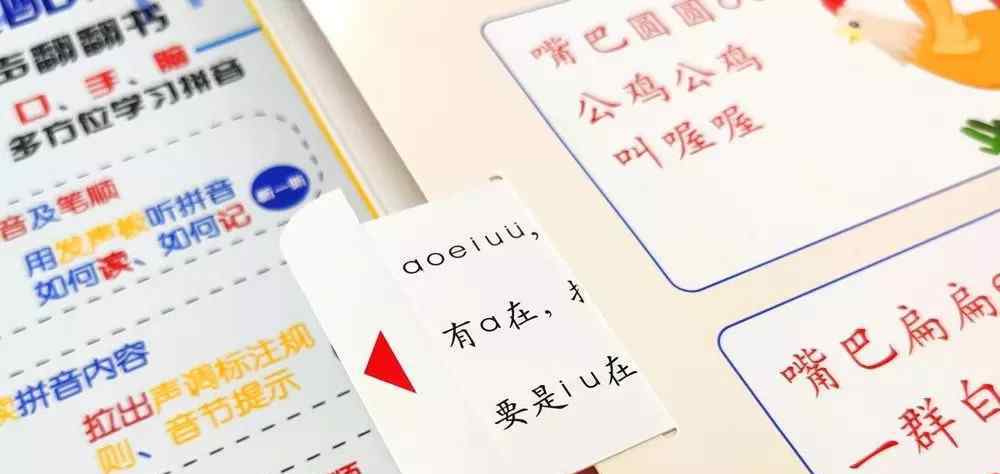 声翻翻书
口、手、脑
多方位学习拼音
音及笔顺
用发声板听拼音
如何读、如何记
拼音内容
拉出声调标注规
则、音节提示
aoeiuü,
有a在,
要是iu在
嘴巴圆圆
公鸡公鸡
叫喔喔
嘴巴扁扁
一群白